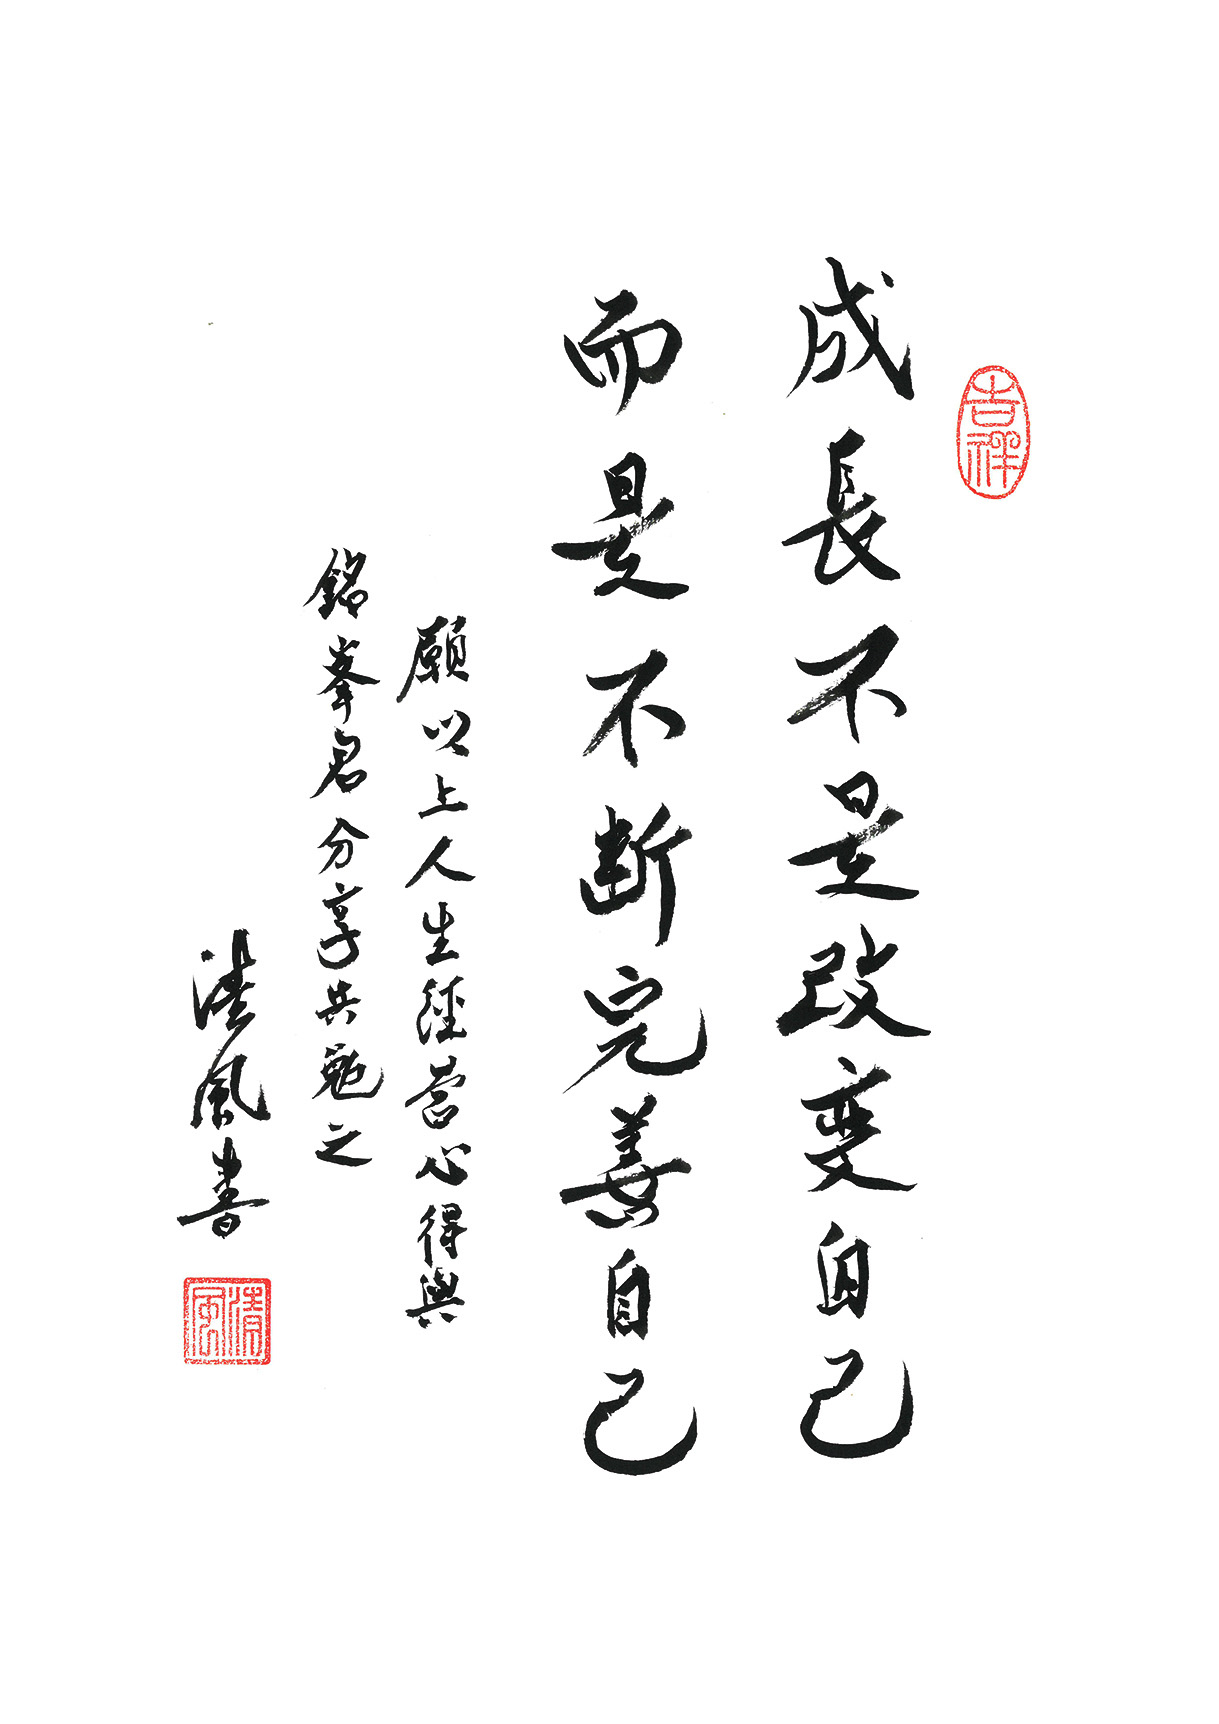 吉祥
成長不是改变自己
而是不断完善自己
願以上人生經营心得與
銘峯君分享共勉之
清風書
清風